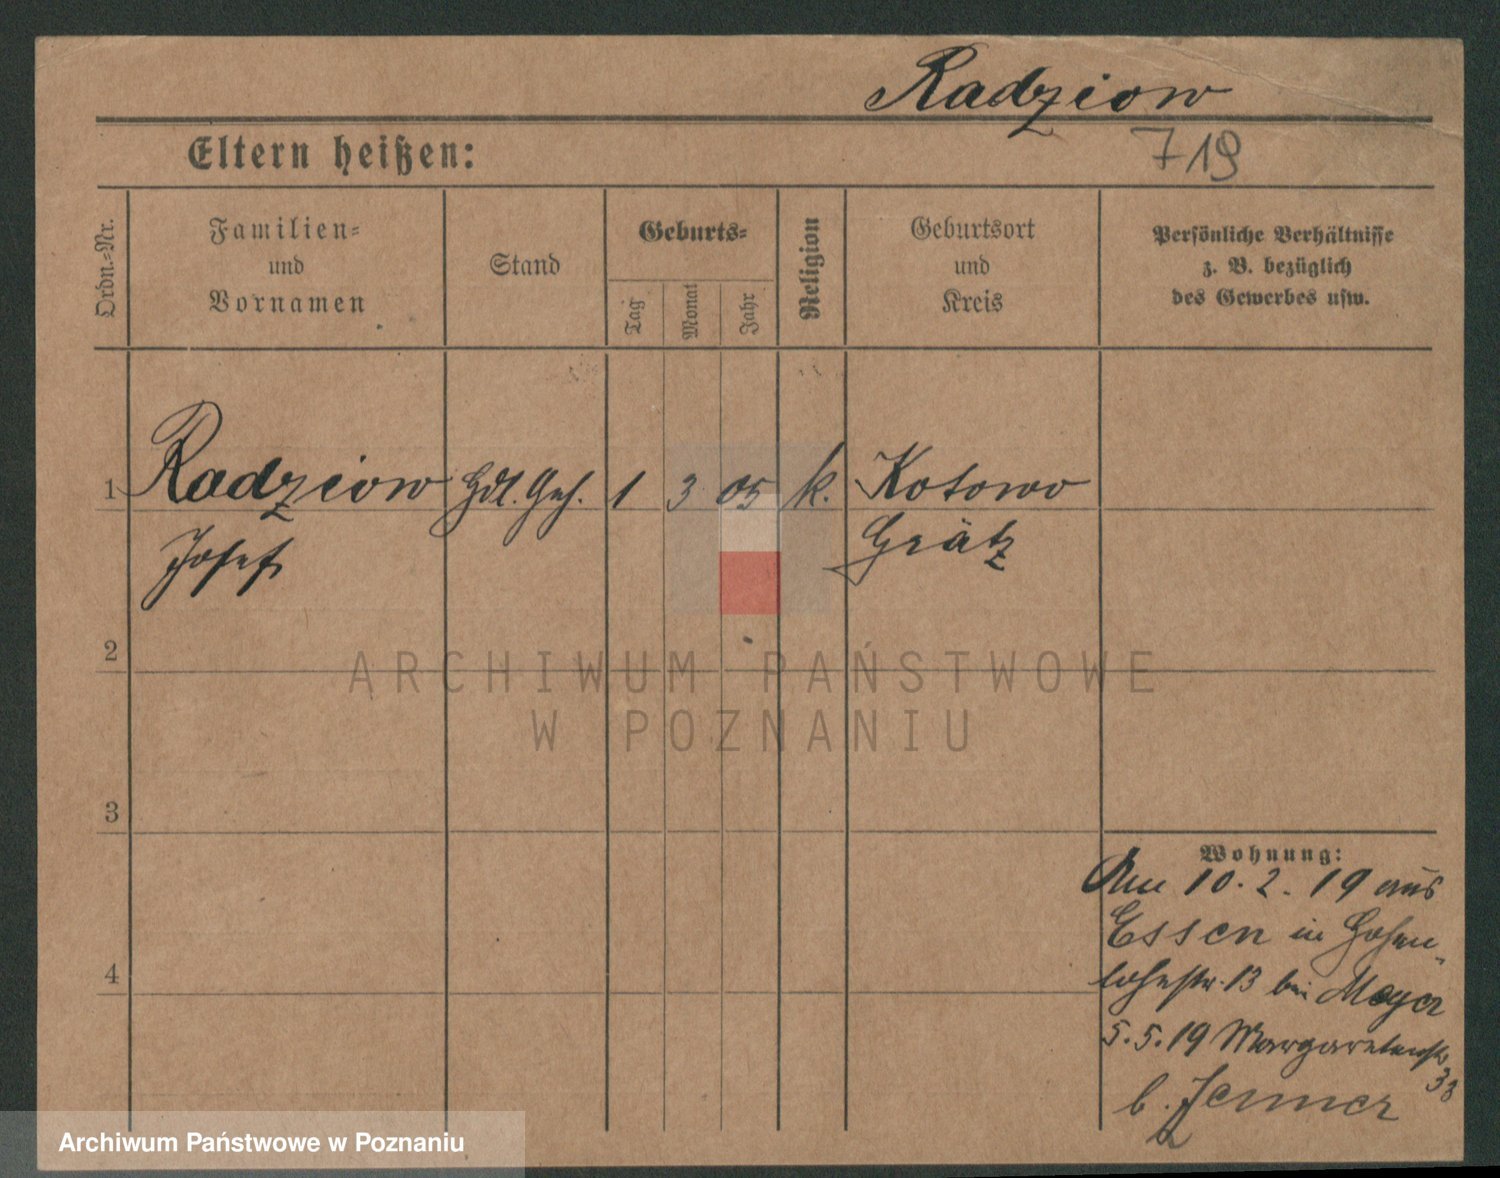 Radziow
Eltern heißen:
719
Ordn.-Nr.
Familien-
und
Vornamen
Stand
Geburts-
Tag
Monat
Jahr
Religion
Geburtsort
und
Kreis
Persönliche Verhältnisse
z. B. bezüglich
des Gewerbes usw.
1 Radziow Hdl. Geh. 1 3 05 k. Kotowo
Josef Grätz
2
ARCHIWUM PAŃSTWOWE
W POZNANIU
3
Wohnung:
Am 10.2.19 aus
Essen in Hohen-
4
lohestr. 13 bei Meyer
5.5.19 Margaretenstr
33
b. Jenner
Archiwum Państwowe w Poznaniu